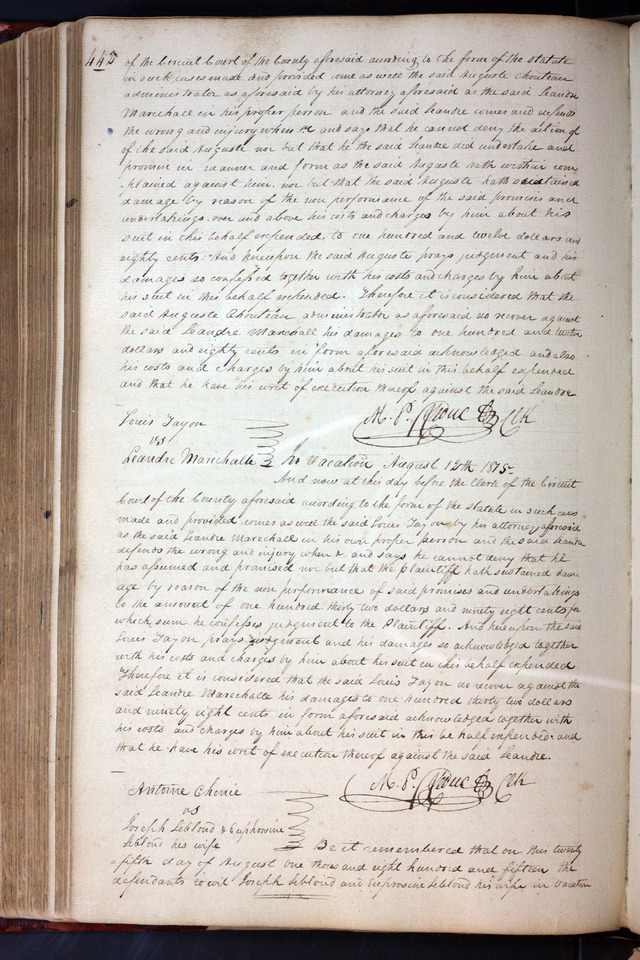 443
of the Circuit Court of the County aforesaid according to the form of the Statute
in such cases made and provided come as well the said Auguste Chouteau
administrator as aforesaid by his attorney aforesaid as the said Leandre
Marechall in his proper person and the said Leandre comes and defends
the wrong and injury when &c and says that he cannot deny the action of
of the said Auguste nor but that he the said Leandre did undertake and
promise in manner and form as the said Auguste hath within com
-plained against him. nor but that the said Auguste hath sustained
damage by reason of the non performance of the said promises and
undertakings. over and above his costs and charges by him about his
suit in this behalf expended to one hundred and twelve dollars and
eighty cents: And hereupon the said Auguste prays judgment and his
damages so confessed together with his costs and charges by him about
his suit in this behalf expended. Therefore it is considered that the
said Auguste Chouteau administrator as aforesaid do recover against
the said Leandre Marechall his damages to one hundred and twelve
dollars and eighty cents in form aforesaid acknowledged and also
his costs and charges by him about his suit in this behalf expended
and that he have his writ of execution thereof against the said Leandre
M. P. Leduc Clk
Louis Tayon
vs
Leandre Marechalle In Vacation August 12th 1815-
And now at this day before the Clerk of the Circuit
Court of the County aforesaid according to the form of the statute in such cases
made and provided comes as well the said Louis Tayon by his attorney aforesaid
as the said Leandre Marechall in his own proper person and the said Leandre
defends the wrong and injury when & and says he cannot deny that he
has assumed and promised nor but that the plaintiff hath sustained dam
age by reason of the non performance of said promises and undertakings
to the amount of one hundred thirty two dollars and ninety eight cents for
which sum he confesses judgment to the Plaintiff. And hereupon the said
Louis Tayon prays judgment and his damages so acknowledged together
with his costs and charges by him about his suit in this behalf expended
Therefore it is considered that the said Louis Tayon do recover against the
said Leandre Marechalle his damages to one hundred thirty two dollars
and ninety eight cents in form aforesaid acknowledged together with
his costs and charges by him about his suit in this behalf expended. and
that he have his writ of execution thereof against the said Leandre.
M. P. Leduc Clk
Antoine Chenie
vs
Joseph Leblond & Euphrosine
Leblond his wife Be it remembered that on this twenty
fifth day of August one thousand eight hundred and fifteen the
defendants to wit Joseph Leblond and Euprosine Leblond his wife in vacation